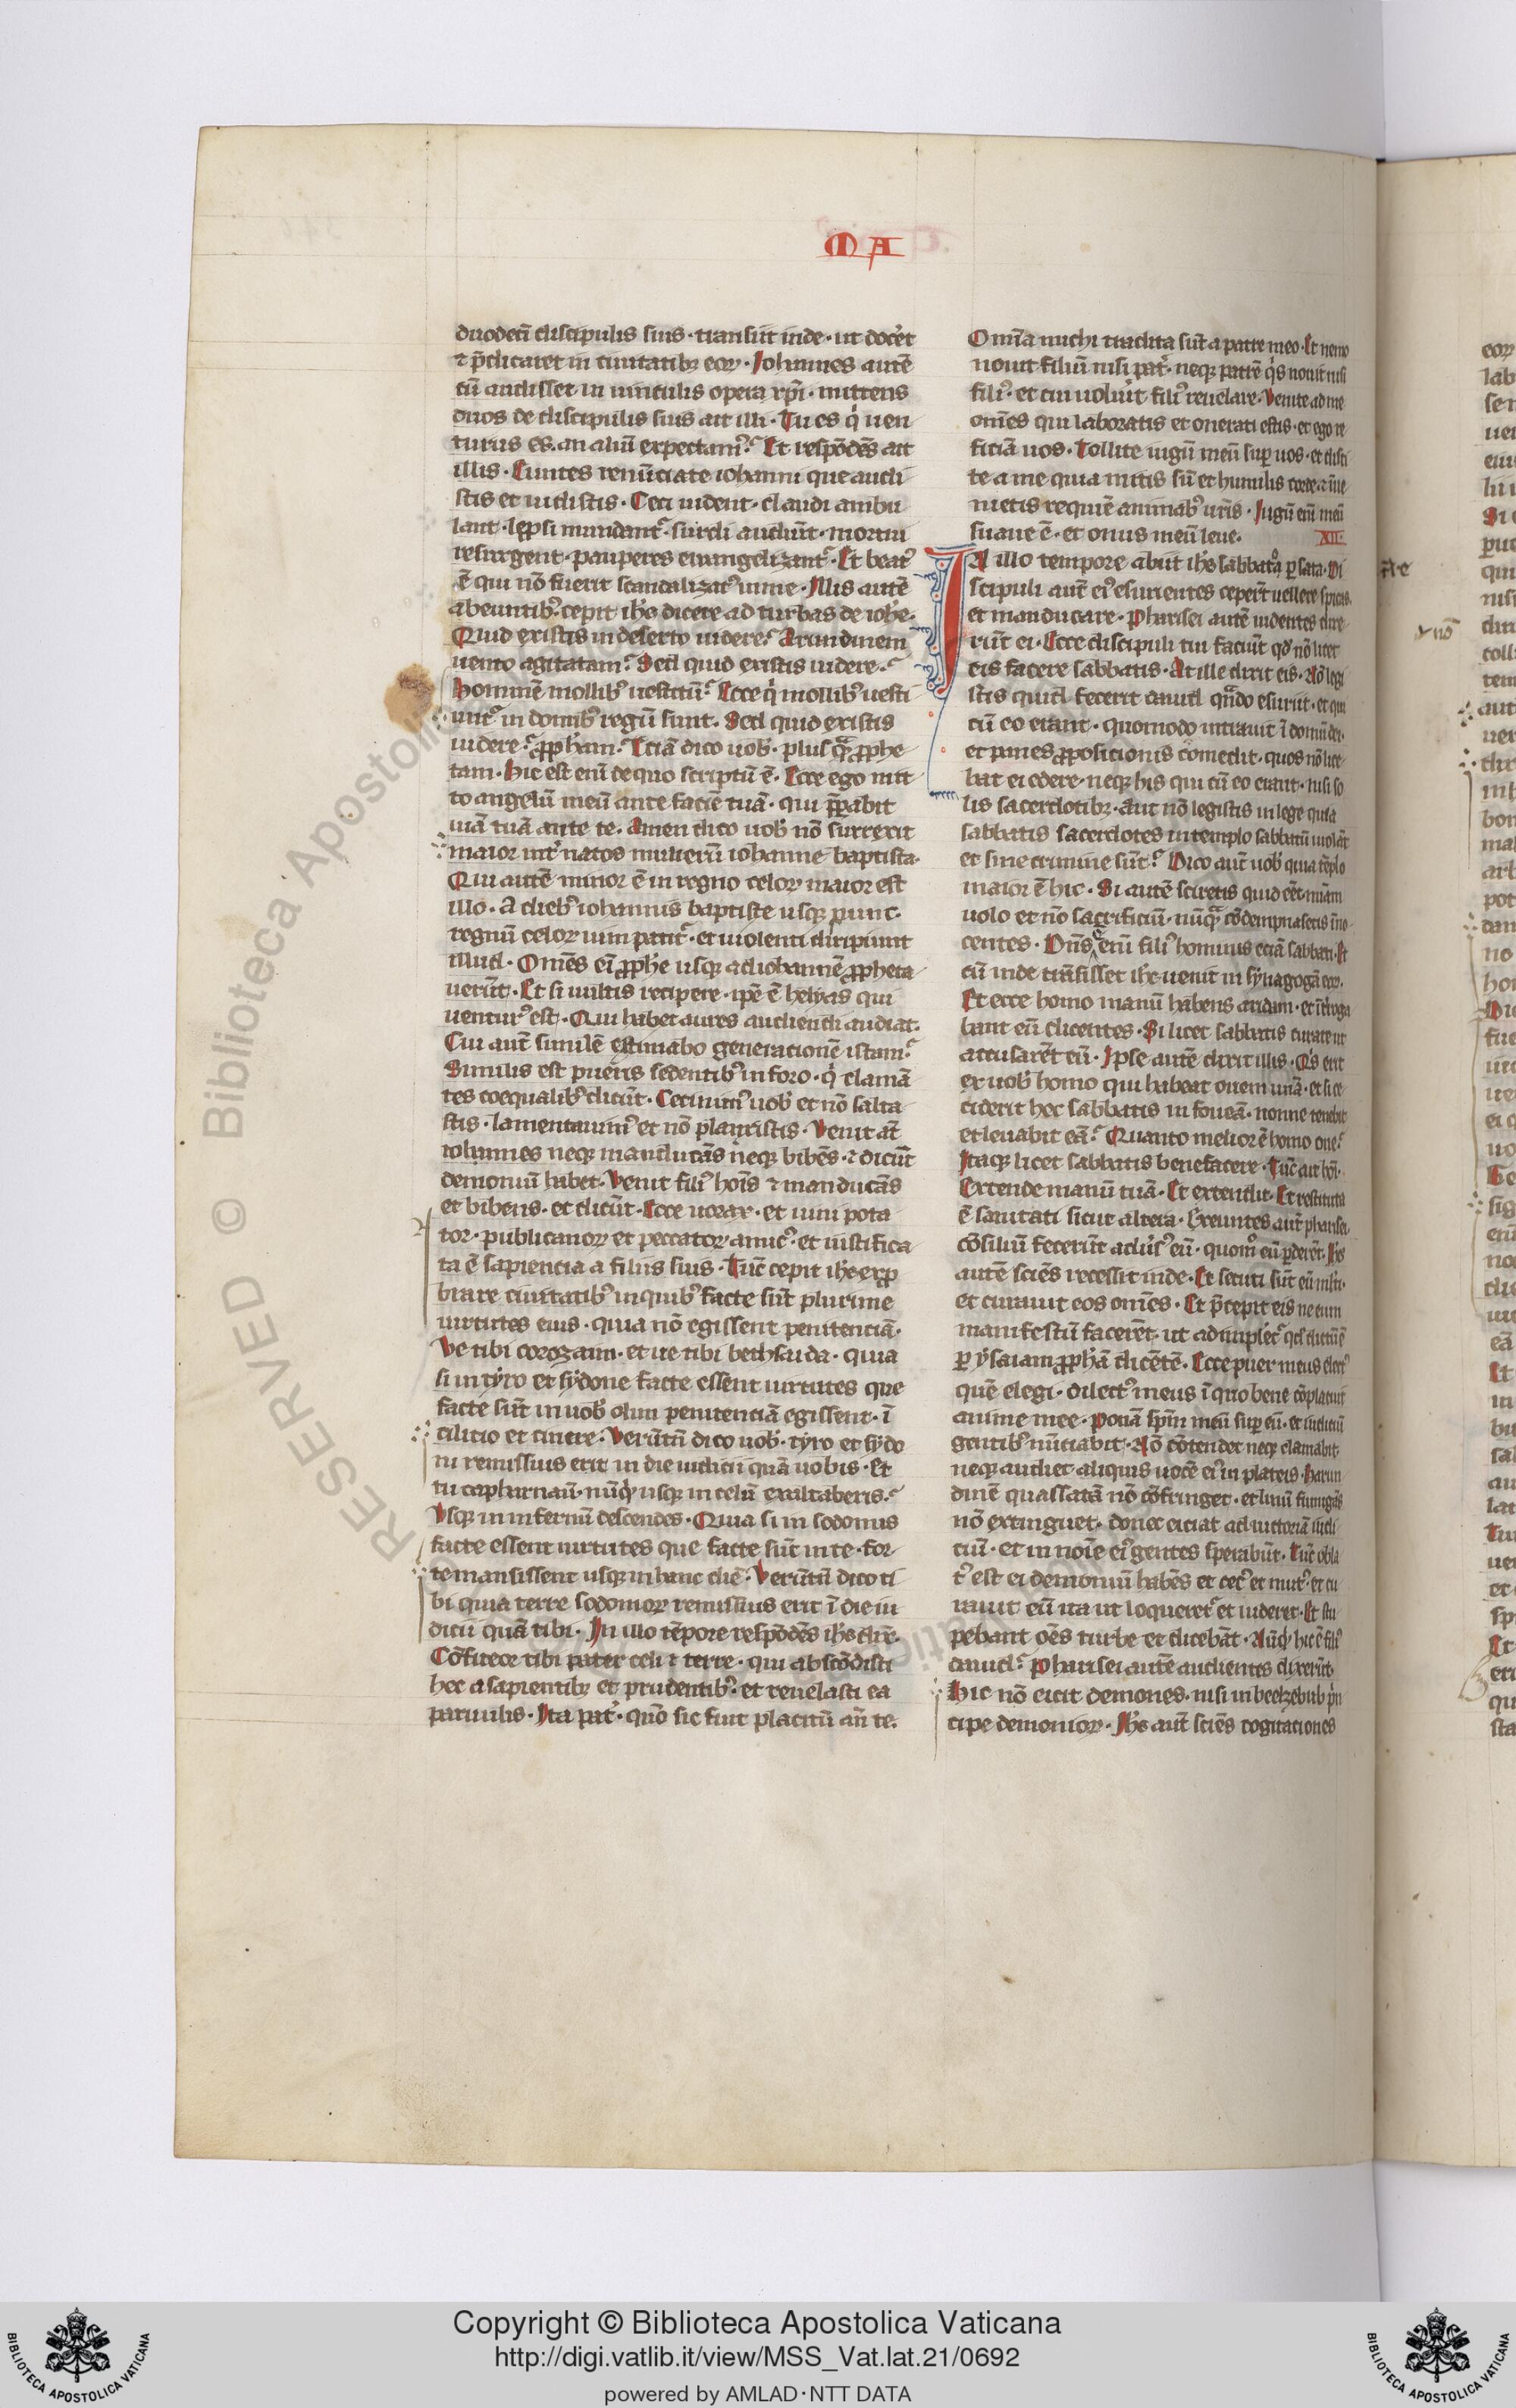 MA
duodeci᷑ discipulis suis · transiit inde · ut docẻt
⁊ p̄dicaret in ciuitatibꝫ eoꝝ · Johannes autē
cū audisset in uinculis opera xp̄i · mittens
duos de discipulis suis ait illi · Tu es q̇ uen
turus es. an aliū expectamꝰ? Et respōdēs ait
illis · Euntes renūciate iohanni que audi
stis et uidistis · Ceci uident · claudi ambu
lant · lep̱si mundantᷣ · surdi audiūt · mortui
resurgent · pauperes euangelizantᷣ · Et beatꝰ
ē qui nō fuerit scandalizatꝰ in me · Illis autē
abeuntibꝰ cepit ih̄s dicere ad turbas de ioh̄e ·
Quid existis in deserto uidere? Arundinem
uento agitatam? Sed quid existis uidere?
hominē mollibꝰ uestitū? Ecce q̇ mollibꝰ uesti
untᷣ in domibꝰ regū sunt · Sed quid existis
uidere? ꝓph̄am? Etiā dico uob̄ · plus qᷓ ꝓphe
tam · hic est eni᷑ de quo scriptū ē · Ecce ego mit
to angelū meū ante faciē tuā · qui p̄parabit
uiā tuā ante te · Amen dico uob̄ nō surrexit
maior int̉ natos mulierū iohanne baptista ·
Qui autē minor ē in regno celoꝝ maior est
illo · A diebꝰ iohannis baptiste usqꝫ nunc ·
regnū celoꝝ uim patitᷣ · et uiolenti diripiunt
illud · Omēs ei᷑ ꝓph̄e usqꝫ ad iohannē ꝓpheta
uerūt · Et si uultis recipere · ip̄e ē helyas qui
uenturꝰ est · Qui habet aures audiendi audiat ·
Cui aut̄ similē estimabo generationē istam?
Similis est pueris sedentibꝰ in foro · q̇ clamā
tes coequalibꝰ dicūt · Cecinimꝰ uob̄ et nō salta
stis · lamentauimꝰ et nō planxistis · Venit at̄
iohannes neqꝫ manducās neqꝫ bibēs · ⁊ dicūt
demoniū habet · Venit filiꝰ hoīs ⁊ manducās
et bibens · et dicūt · Ecce uorax · et uini pota
tor · publicanoꝝ et peccatoꝝ amicꝰ · et iustifica
ta ē sapiencia a filiis suis · Tūc cepit ih̄s exp̱
brare ciuitatibꝰ in quibꝰ facte sūt plurime
uirtutes eius · quia nō egissent penitenciā ·
Ve tibi corozaim · et ue tibi bethsaida · quia
si in tyro et sydone facte essent uirtutes que
facte sūt in uob̄ olim penitenciā egissent · ī
cilicio et cinere · Verūtn̄ dico uob̄ · tyro et sydo
ni remissius erit in die iudicii quā uobis · Et
tu capharnaū · nūq̇d usqꝫ in celū exaltaberis?
Vsqꝫ in infernū descendes · Quia si in sodomis
facte essent uirtutes que facte sūt in te · for
te mansissent usqꝫ in hanc diē · Verūtn̄ dico ti
bi quia terre sodomoꝝ remissius erit ī die iu
dicii quā tibi · In illo tēpore respōdēs ih̄s dix̄ ·
Cōfiteor tibi pater celi ⁊ terre · qui abscōdisti
hec a sapientibꝫ et prudentibꝰ · et reuelasti ea
paruulis · Ita pat̉ · quō sic fuit placitū an̄ te ·
Omīa michi tradita sūt a patre meo · Et nemo
nouit filiū nisi pat̉ · neqꝫ patrē q̇s nouit nisi
filiꝰ · et cui uolūit filiꝰ reuelare · Venite ad me
omēs qui laboratis et onerati estis · et ego re
ficiā uos · Tollite iugū meū sup̱ uos · et disci
te a me quia mitis sū et humilis corde ⁊ īue
nietis requiē animabꝰ ur̄is · Jugū eni᷑ meū
suaue ē · et onus meū leue · XII
In illo tempore abiit ih̄s sabbato ꝑ sata · Di
scipuli aut̄ eiꝰ esurientes ceper̄t uellere spicas
et manducare · Pharisei autē uidentes dixe
rūt ei · Ecce discipuli tui faciūt qd̄ nō licet
eis facere sabbatis · At ille dixit eis · Nō legi
stis quid fecerit dauid qn̄do esuriit · et qui
cū eo erant · quomodo intrauit ī domū dei ·
et panes ꝓposicionis comedit · quos nō lice
bat ei edere · neqꝫ his qui cū eo erant · nisi so
lis sacerdotibꝫ · Aut nō legistis in lege quia
sabbatis sacerdotes in templo sabbatū uiolāt
et sine crimine sūt? Dico aut̄ uob̄ quia tēplo
maior ē hic · Si autē sciretis quid ē et mīam
uolo et nō sacrificiū · nūqᷓ cōdempnasetis īno
centes · Dn̄s eni᷑ filiꝰ hominis eciā sabbati · Et
cū inde trāsisset ih̄c · uenit in synagogā eoꝝ ·
Et ecce homo manū habens aridam · et īt̉roga
bant eū dicentes · Si licet sabbatis curare ut
accusarēt eū · Ipse autē dixit illis · Q̇s erit
ex uob̄ homo qui habeat ouem unā · et si ce
ciderit hec sabbatis in foueā · nonne tenebit
et leuabit eā? Quanto melior ē homo oue?
Itaqꝫ licet sabbatis benefacere · Tūc ait hōi ·
Extende manū tuā · Et extendit · Et restituta
ē sanitati sicut altera · Exeuntes aut̄ pharisei ·
cōsiliū fecerūt adūsꝰ eū · quomͦ eū ꝑderēt · Ih̄s
autē sciēs recessit inde · Et secuti sūt eū mlti ·
et curauit eos omēs · Et p̄cepit eis ne eum
manifestū facerēt · ut adimpler̄etᷣ qd̄ dictū ē
ꝑ ysaiam ꝓph̄ā dicētē · Ecce puer meus electꝰ
quē elegi · dilectꝰ meus ī quo bene cōplacuit
anime mee · Ponā sp̄m meū sup̱ eū · et iudiciū
gentibꝰ nūciabit · Nō cōtendet neqꝫ clamabit
neqꝫ audiet aliquis uocē eiꝰ in plateis · Harun
dinē quassatā nō cōfringet · et linū fumigās
nō extinguet · donec eiciat ad uictoriā iudi
ciū · et in noīe eiꝰ gentes sperabūt · Tūc obla
tꝰ est ei demoniū habēs et cecꝰ et mutꝰ · et cu
rauit eū ita ut loqueretᷣ et uideret · Et stu
pebant oēs turbe et dicebāt · Nūq̇d hic ē filiꝰ
dauid? Pharisei autē audientes dixerūt
Hic nō eicit demones · nisi in beelzebub pn̄
cipe demonioꝝ · Ih̄s aut̄ sciēs cogitationes
RESERVED © Biblioteca Apostolica Vaticana
Copyright © Biblioteca Apostolica Vaticana
http://digi.vatlib.it/view/MSS_Vat.lat.21/0692
powered by AMLAD·NTT DATA
BIBLIOTECA APOSTOLICA VATICANA
BIBLIOTECA APOSTOLICA VATICANA